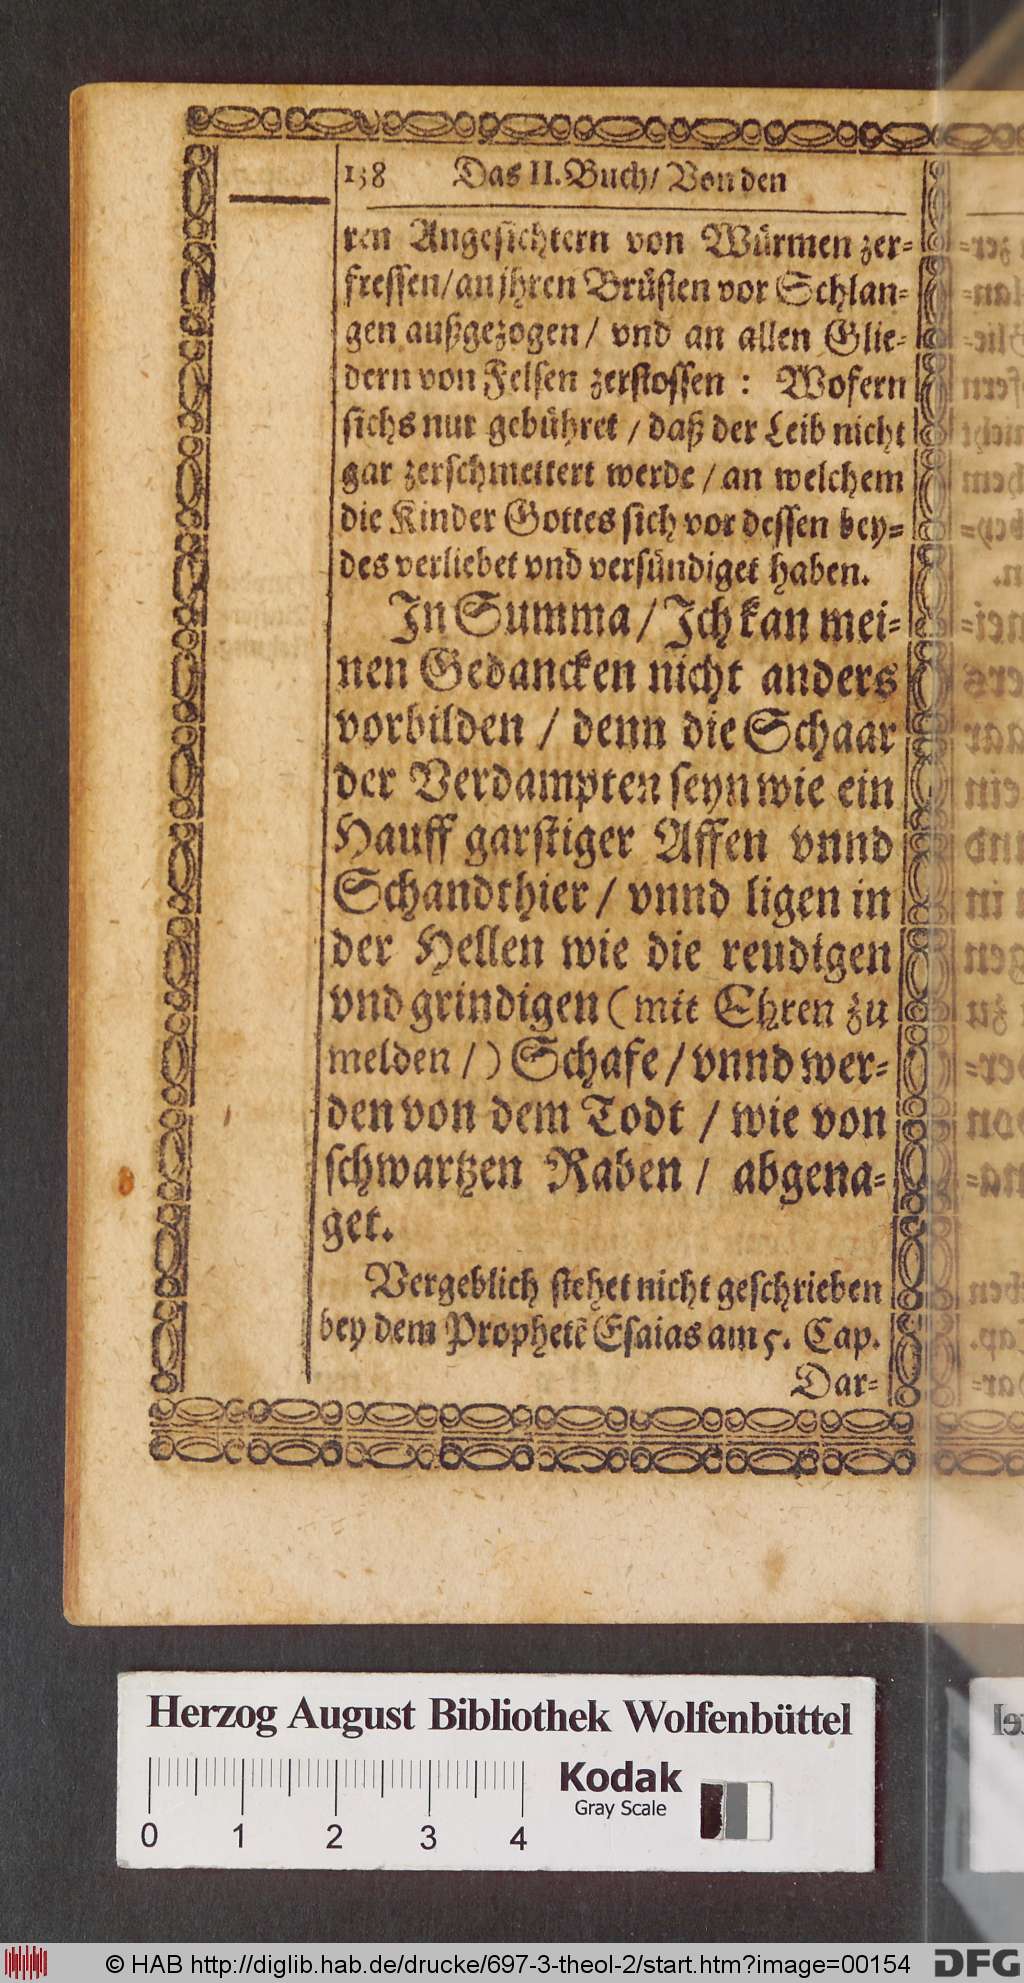 138 Das II. Buch / Von den
ren Angesichtern von Würmen zer-
fressen / an jhren Brüsten vor Schlan-
gen außgezogen / vnd an allen Glie-
dern von Felsen zerstossen : Wofern
sichs nur gebühret / daß der Leib nicht
gar zerschmettert werde / an welchem
die Kinder Gottes sich vor dessen bey-
des verliebet vnd versündiget haben.
In Summa / Ich kan mei-
nen Gedancken nicht anders
vorbilden / denn die Schaar
der Verdampten seyn wie ein
Hauff garstiger Affen vnnd
Schandthier / vnnd ligen in
der Hellen wie die reudigen
vnd grindigen (mit Ehren zu
melden /) Schafe / vnnd wer-
den von dem Todt / wie von
schwartzen Raben / abgena-
get.
Vergeblich stehet nicht geschrieben
bey dem Prophetē Esaias am 5. Cap.
Dar-
Herzog August Bibliothek Wolfenbüttel
Kodak
Gray Scale
0 1 2 3 4
© HAB http://diglib.hab.de/drucke/697-3-theol-2/start.htm?image=00154
DFG